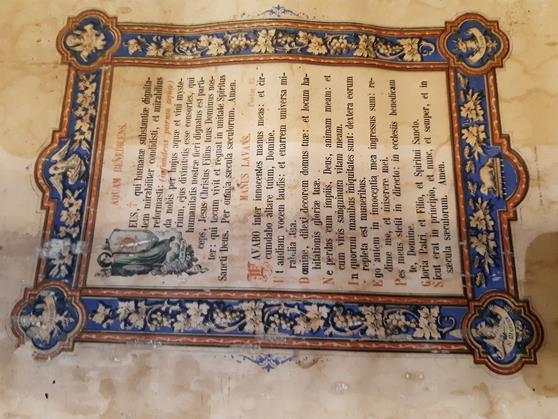 AQUAM BENEDICENS.
DEUS, † qui humanæ substantiæ dignita-
tem mirabiliter condidisti, et mirabilius
reformasti:
da nobis per hujus aquæ et vini myste-
rium, ejus divinitatis esse consortes, qui
humanitatis nostræ fieri dignatus est parti-
ceps, Jesus Christus Filius tuus Dominus nos-
ter: qui tecum vivit et regnat in unitate Spiritus
Sancti Deus. Per omnia sæcula sæculorum. Amen.
MANUS LAVANS. Psalm. 25.
LAVABO inter innocentes manus meas: et cir-
cumdabo altare tuum, Domine.
Ut audiam vocem laudis: et enarrem universa mi-
rabilia tua.
Domine, dilexi decorem domus tuæ: et locum ha-
bitationis gloriæ tuæ.
Ne perdas cum impiis, Deus, animam meam: et
cum viris sanguinum vitam meam.
In quorum manibus iniquitates sunt: dextera eorum
repleta est muneribus.
Ego autem in innocentia mea ingressus sum: re-
dime me, et miserere mei.
Pes meus stetit in directo: in ecclesiis benedicam
te, Domine.
Gloria Patri, et Filio, et Spiritui Sancto.
Sicut erat in principio, et nunc, et semper, et in
sæcula sæculorum. Amen.